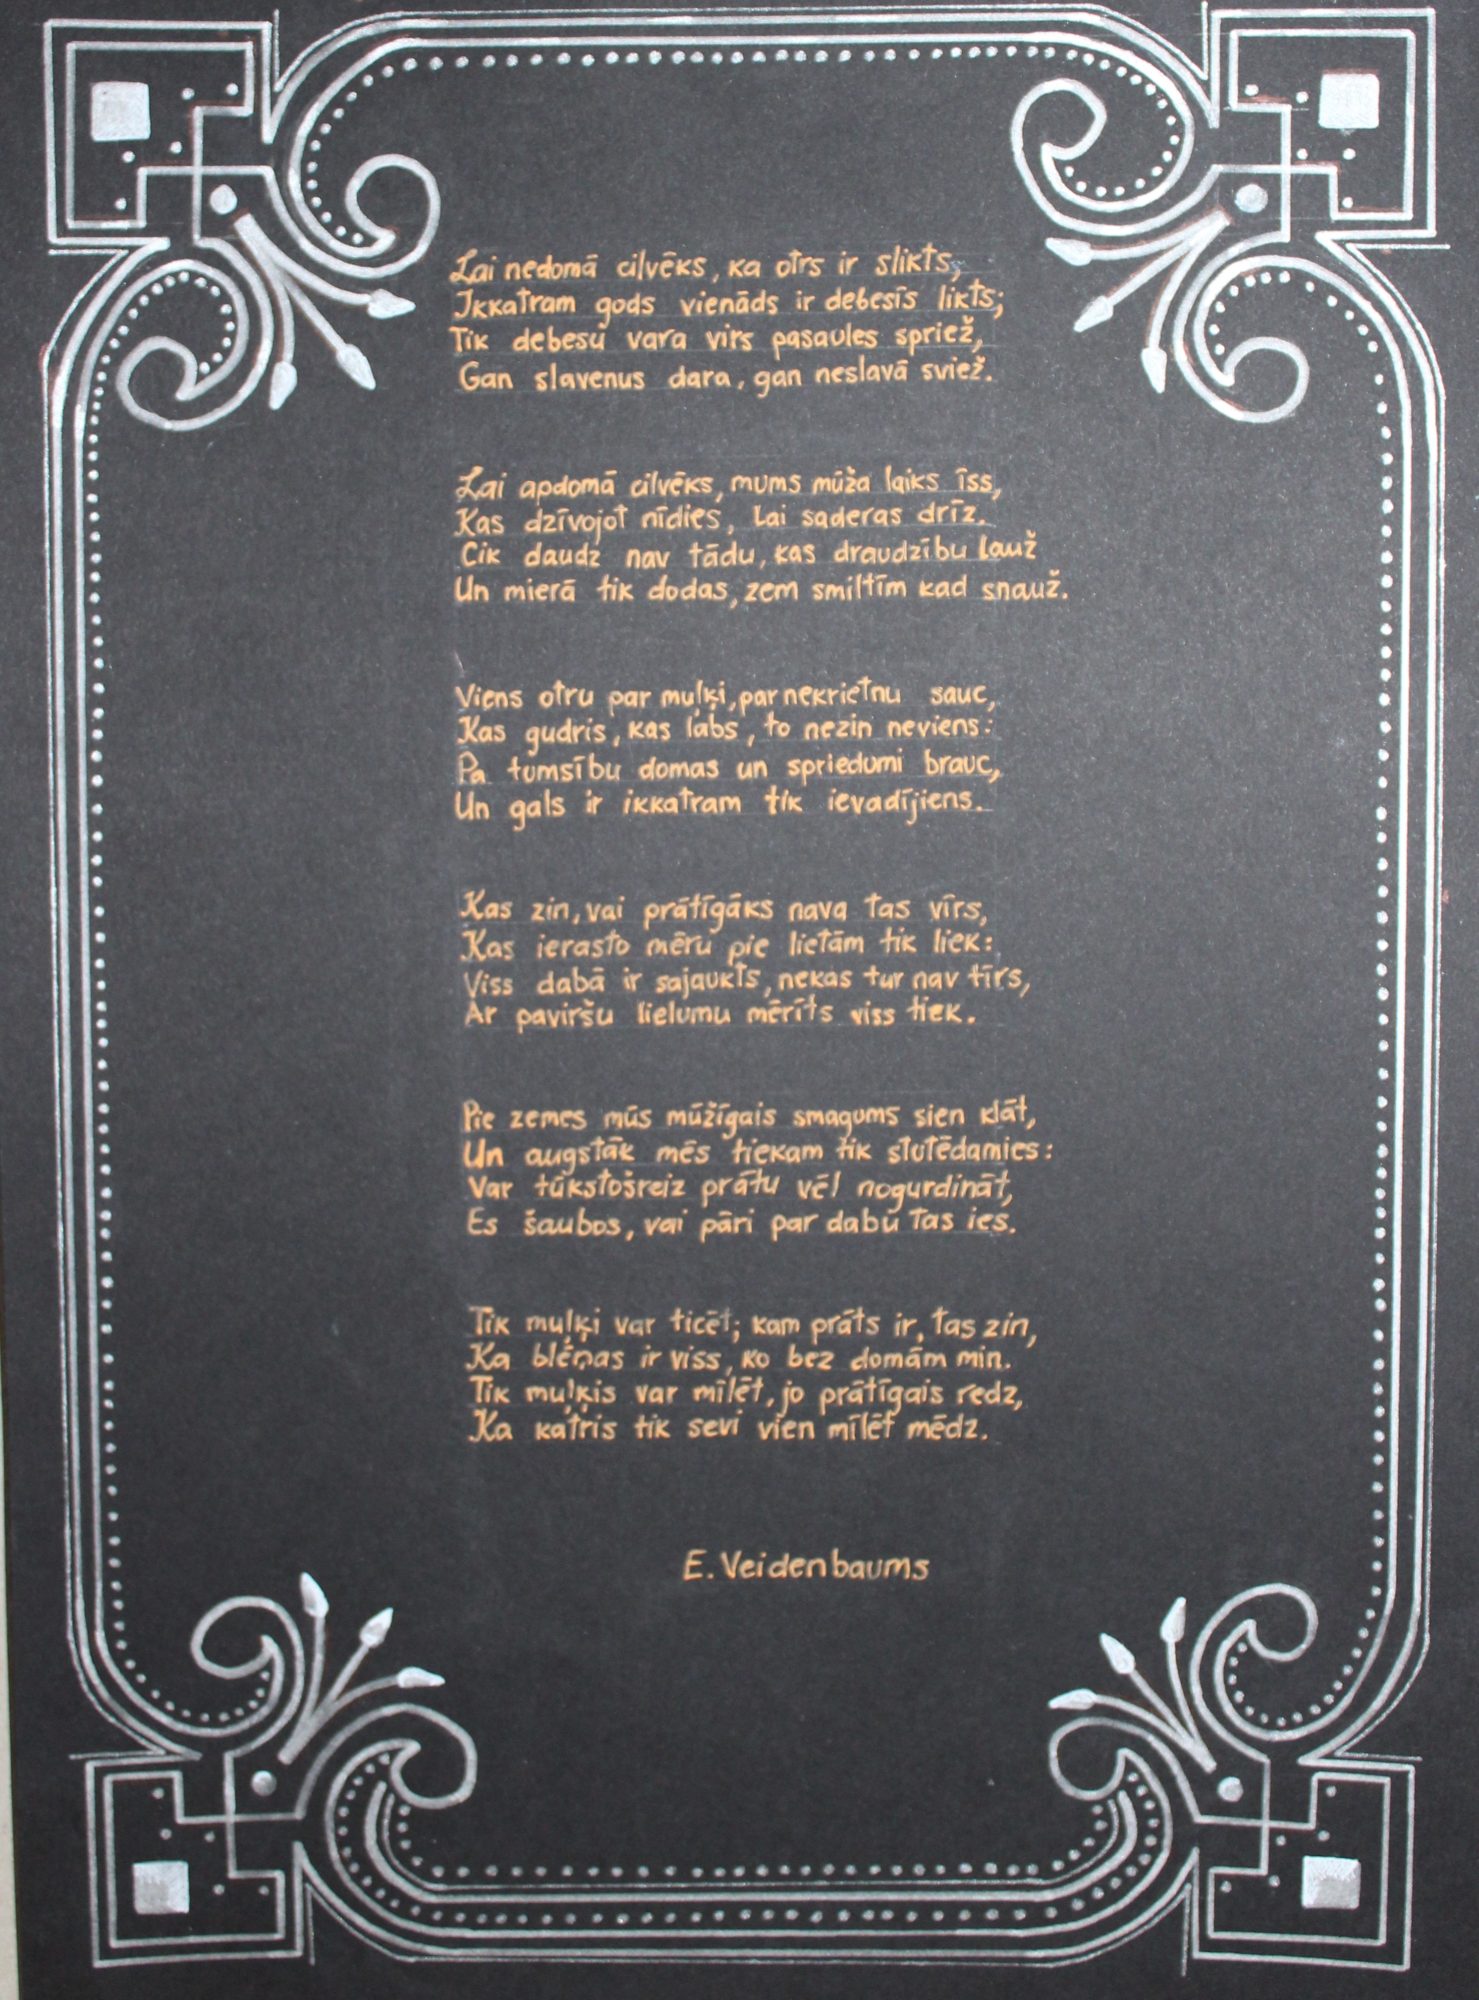 Lai nedomā cilvēks, ka otrs ir slikts,
Ikkatram gods vienāds ir debesīs likts;
Tik debesu vara virs pasaules spriež,
Gan slavenus dara, gan neslavā sviež.
Lai apdomā cilvēks, mums mūža laiks īss,
Kas dzīvojot nīdies, lai saderas drīz.
Cik daudz nav tādu, kas draudzību lauž
Un mierā tik dodas, zem smiltīm kad snauž.
Viens otru par muļķi, par nekrietnu sauc,
Kas gudris, kas labs, to nezin neviens:
Pa tumsību domas un spriedumi brauc,
Un gals ir ikkatram tik ievadījiens.
Kas zin, vai prātīgāks nava tas vīrs,
Kas ierasto mēru pie lietām tik liek:
Viss dabā ir sajaukts, nekas tur nav tīrs,
Ar paviršu lielumu mērīts viss tiek.
Pie zemes mūs mūžīgais smagums sien klāt,
Un augstāk mēs tiekam tik stutēdamies:
Var tūkstošreiz prātu vēl nogurdināt,
Es šaubos, vai pāri par dabu tas ies.
Tik muļķi var ticēt; kam prāts ir, tas zin,
Ka blēņas ir viss, ko bez domām min.
Tik muļķis var mīlēt, jo prātīgais redz,
Ka katris tik sevi vien mīlēt mēdz.
E. Veidenbaums